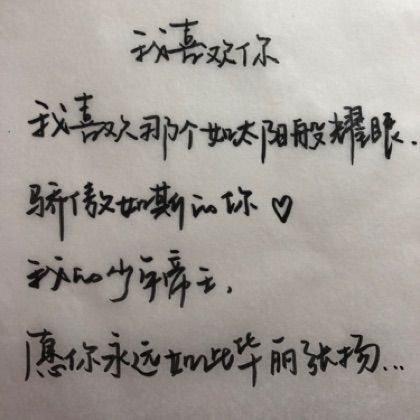 我喜欢你
我喜欢那个如太阳般耀眼.
骄傲如斯的你♡
我的少年帝王,
愿你永远如此华丽张扬...